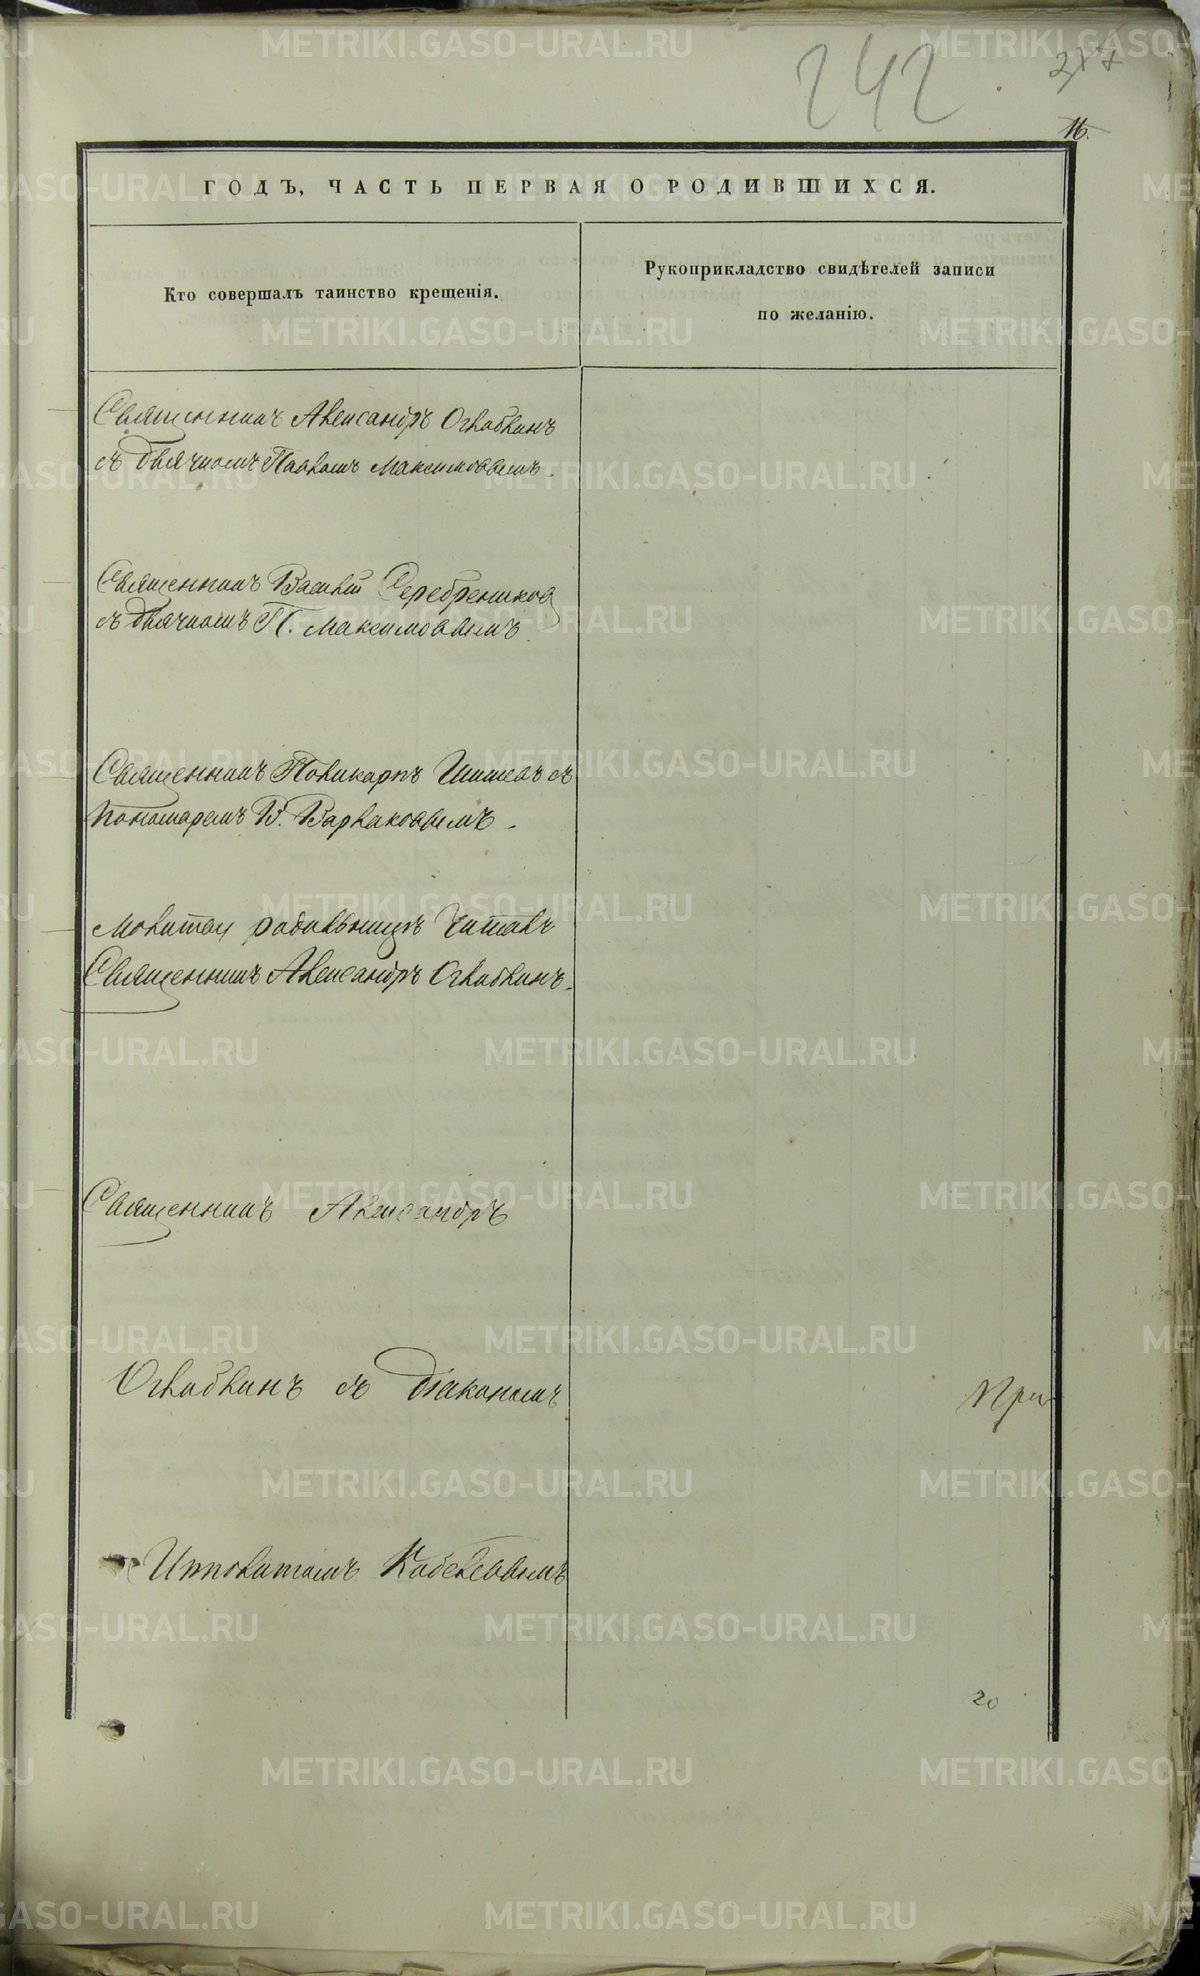 242
16.
ГОДЪ, ЧАСТЬ ПЕРВАЯ О РОДИВШИХСЯ.
Кто совершалъ таинство крещенія.
Рукоприкладство свидѣтелей записи
по желанію.
Священникъ Александръ Оглоблинъ
съ дьячкомъ Павломъ Максимовымъ.
Священникъ Василій Серебрениковъ
съ дьячкомъ П. Максимовымъ
Священникъ Поликарпъ съ
пономаремъ В. Варлаковымъ.
Молитву родильницѣ читалъ
Священникъ Александръ Оглоблинъ.
Священникъ Александръ
Оглоблинъ съ діакономъ
При
Ипполитомъ
20
METRIKI.GASO-URAL.RU